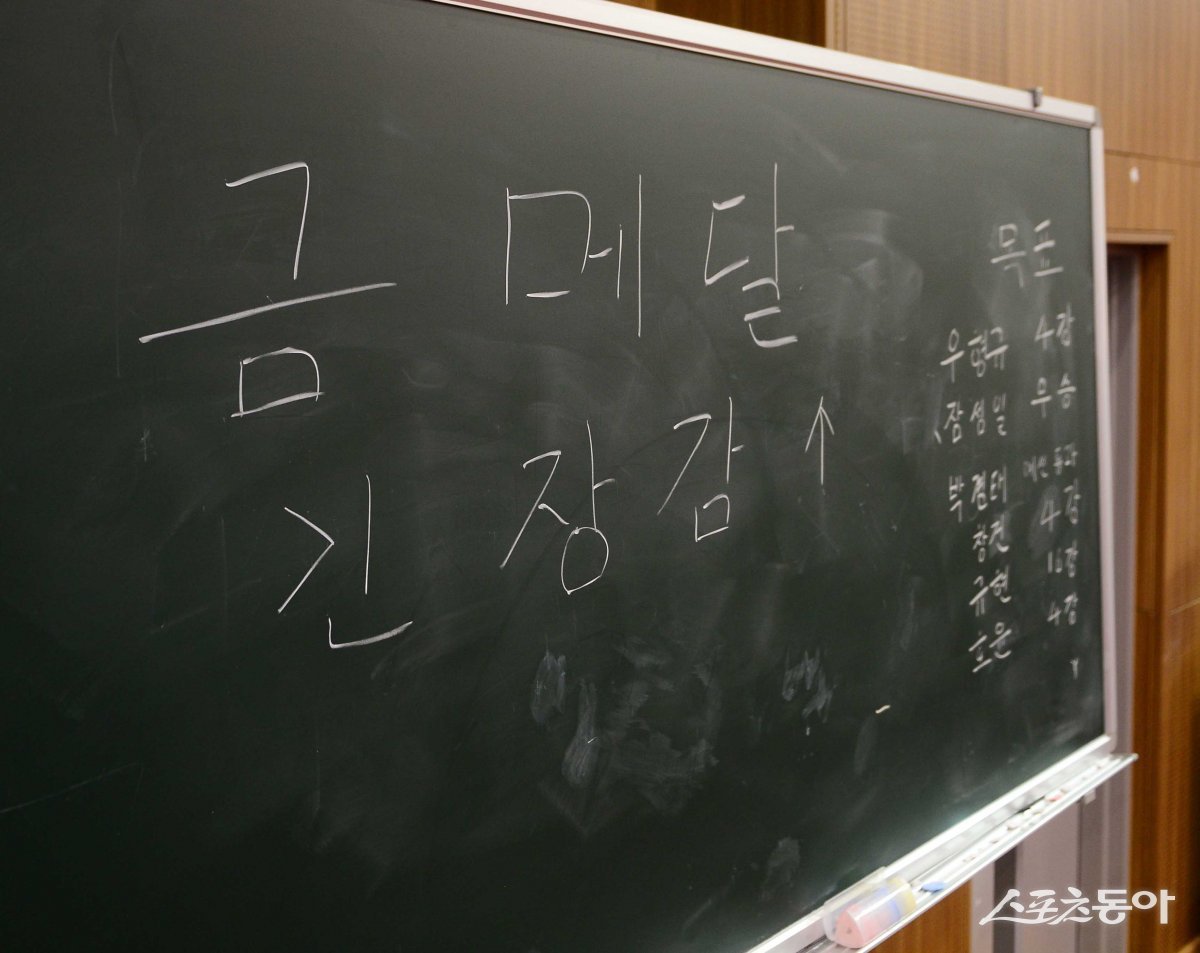 금메달
긴장감↑
목표
우형규 4강
장성일 우승
박경태 예선통과
창건 4강
규현 16강
호윤 4강
스포츠동아